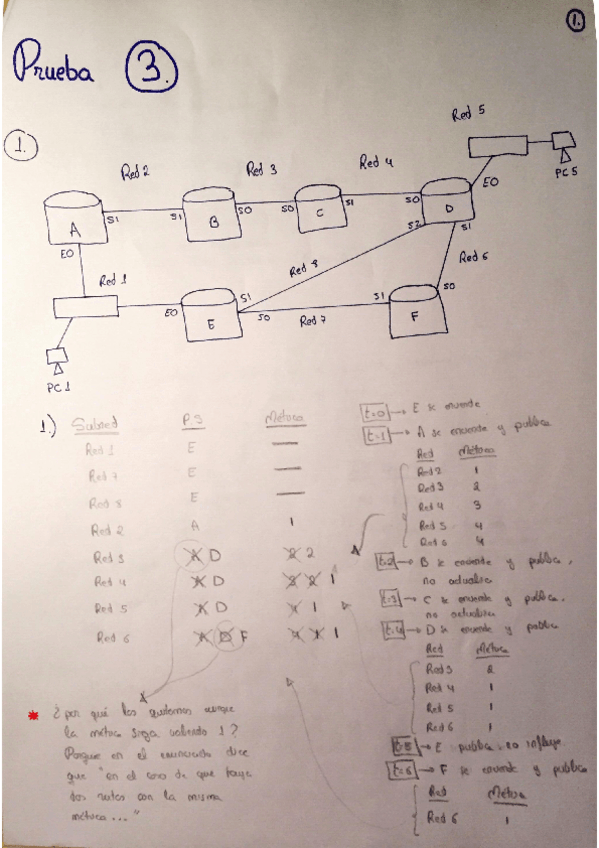 1.
Prueba 3.
1.
Red 5
PC5
Red 2
Red 3
Red 4
A
S1
S1
B
S0
S0
C
S1
S0
D
E0
S2
S1
E0
Red 1
Red 8
Red 6
E0
E
S1
S0
Red 7
S1
F
S0
PC1
1.) Subred P.S Métrica
Red 1 E —
Red 7 E —
Red 8 E —
Red 2 A 1
Red 3 A D 2 2
Red 4 A D 1
Red 5 A D 4 1
Red 6 A D F 4 1 1
t=0 → E se enciende
t=1 → A se enciende y publica
Red Métrica
Red 2 1
Red 3 2
Red 4 3
Red 5 4
Red 6 4
t=2 → B se enciende y publica,
no actualiza
t=3 → C se enciende y publica.
no actualiza
t=4 → D se enciende y publica
Red Métrica
Red 3 2
Red 4 1
Red 5 1
Red 6 1
t=5 → E publica, no influye.
t=6 → F se enciende y publica
Red Métrica
Red 6 1
* ¿por qué los quitamos aunque
la métrica siga valiendo 1?
Porque en el enunciado dice
que "en el caso de que haya
dos rutas con la misma
métrica..."